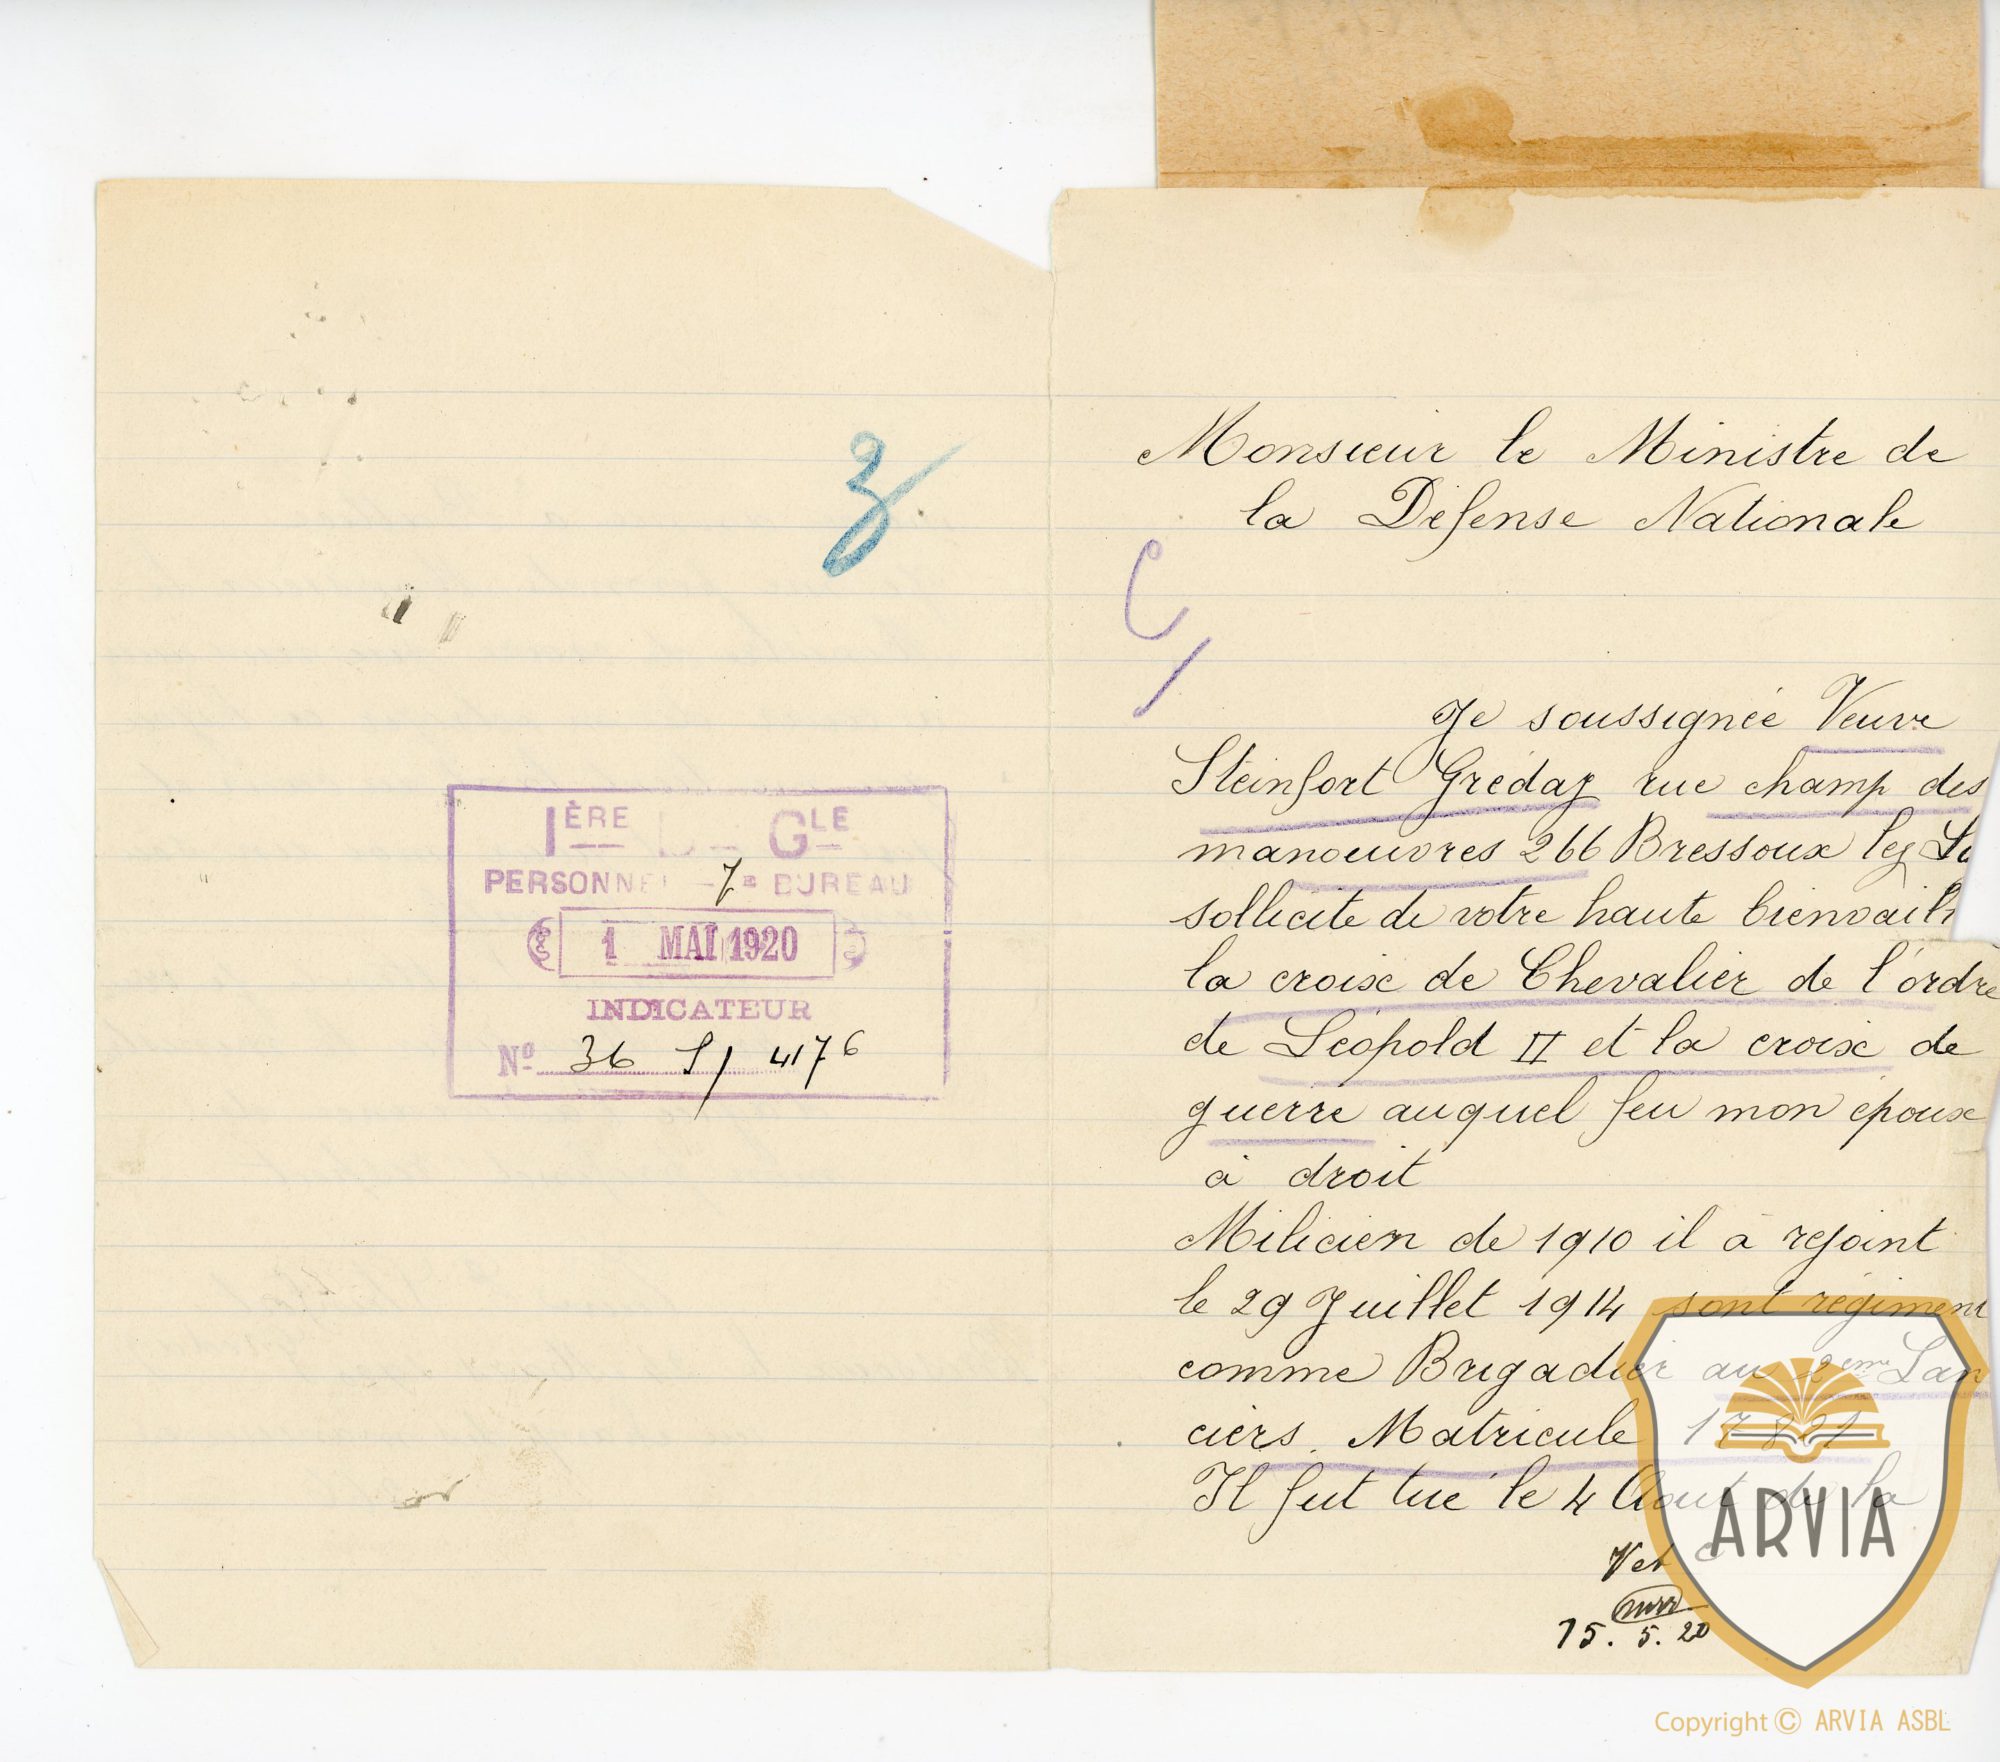 IÈRE D GLE
PERSONNEL 7E BUREAU
1 MAI 1920
INDICATEUR
No 36 S/ 4176
Monsieur le Ministre de
la Défense Nationale
Je soussignée Veuve
Steinfort Grédaz rue champ des
manoeuvres 266 Bressoux lez
sollicite de votre haute bienveill
la croix de Chevalier de l'ordre
de Léopold II et la croix de
guerre auquel feu mon époux
à droit
Milicien de 1910 il à rejoint
le 29 Juillet 1914 sont régiment
comme Brigadier au 2eme Lan
ciers. Matricule 17821
Il fut tué le 4 Aout de la
15. 5. 20
ARVIA
Copyright © ARVIA ASBL